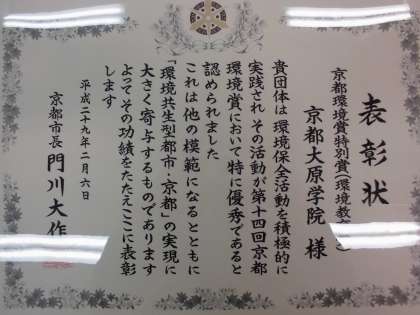 表彰状
京都環境賞特別賞(環境教
京都大原学院 様
貴団体は 環境保全活動を積極的に
実践され その活動が第十四回京都
環境賞において特に優秀であると
認められました
これは他の模範になるとともに
「環境共生型都市・京都」の実現に
大きく寄与するものであります
よってその功績をたたえここに表彰
します
平成二十九年二月六日
京都市長 門川大作